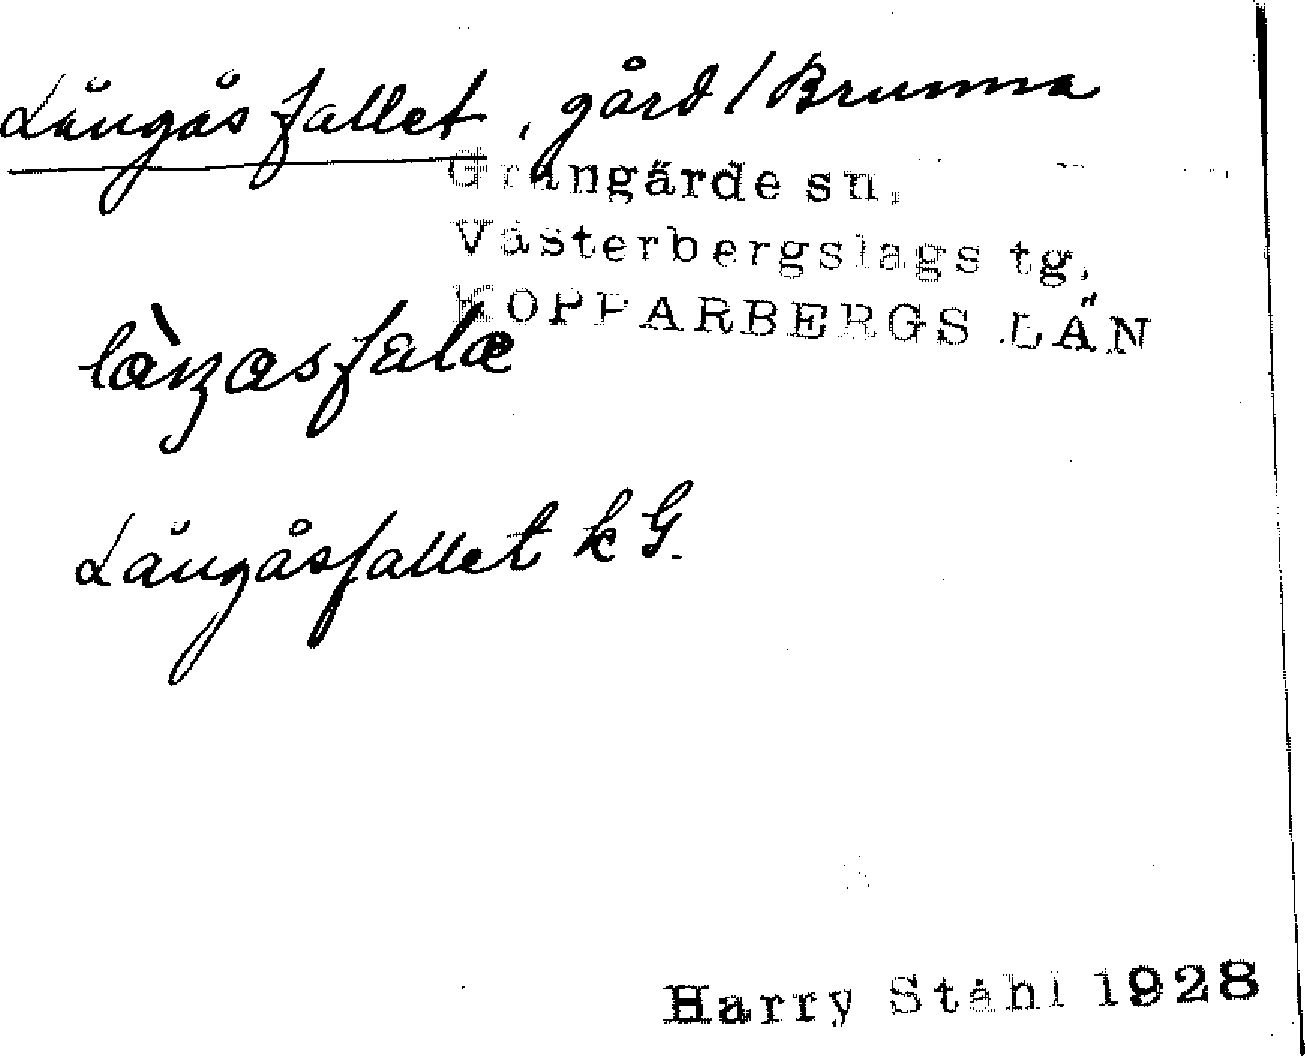 Långåsfallet, gård / Brunna
Grangärde sn,
Västerbergslags tg,
KOPPARBERGS LÄN
Långåsfallet k G.
Harry Ståhl 1928